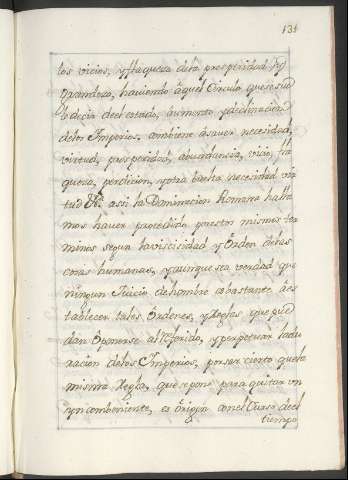 131
los vicios, y flaqueza dela prosperidad, y
grandeza, haciendo aquel Circulo que se sue
le decir del estado, aumento y declinacion
delos Imperios, ambiene à saver necesidad,
virtud, prosperidad, abundancia, vicio, fla
queza, perdicion, y otra buelta necesidad vir
tud &c. assi la Dominacion Romana halla
mos haver procedido por estos mismos ter
minos segun la vicisidad y Orden delas
cosas humanas, y aunque sea verdad que
ningun Juicio de hombre es bastante à es
tablecer tales Ordenes, y Reglas que pue
dan Oponerse al referido, y perpetuar la du
racion delos Imperios, por ser cierto que la
misma Regla, que se pone para quitar un
ynconbeniente, es Origen con el Curso deel
tiempo